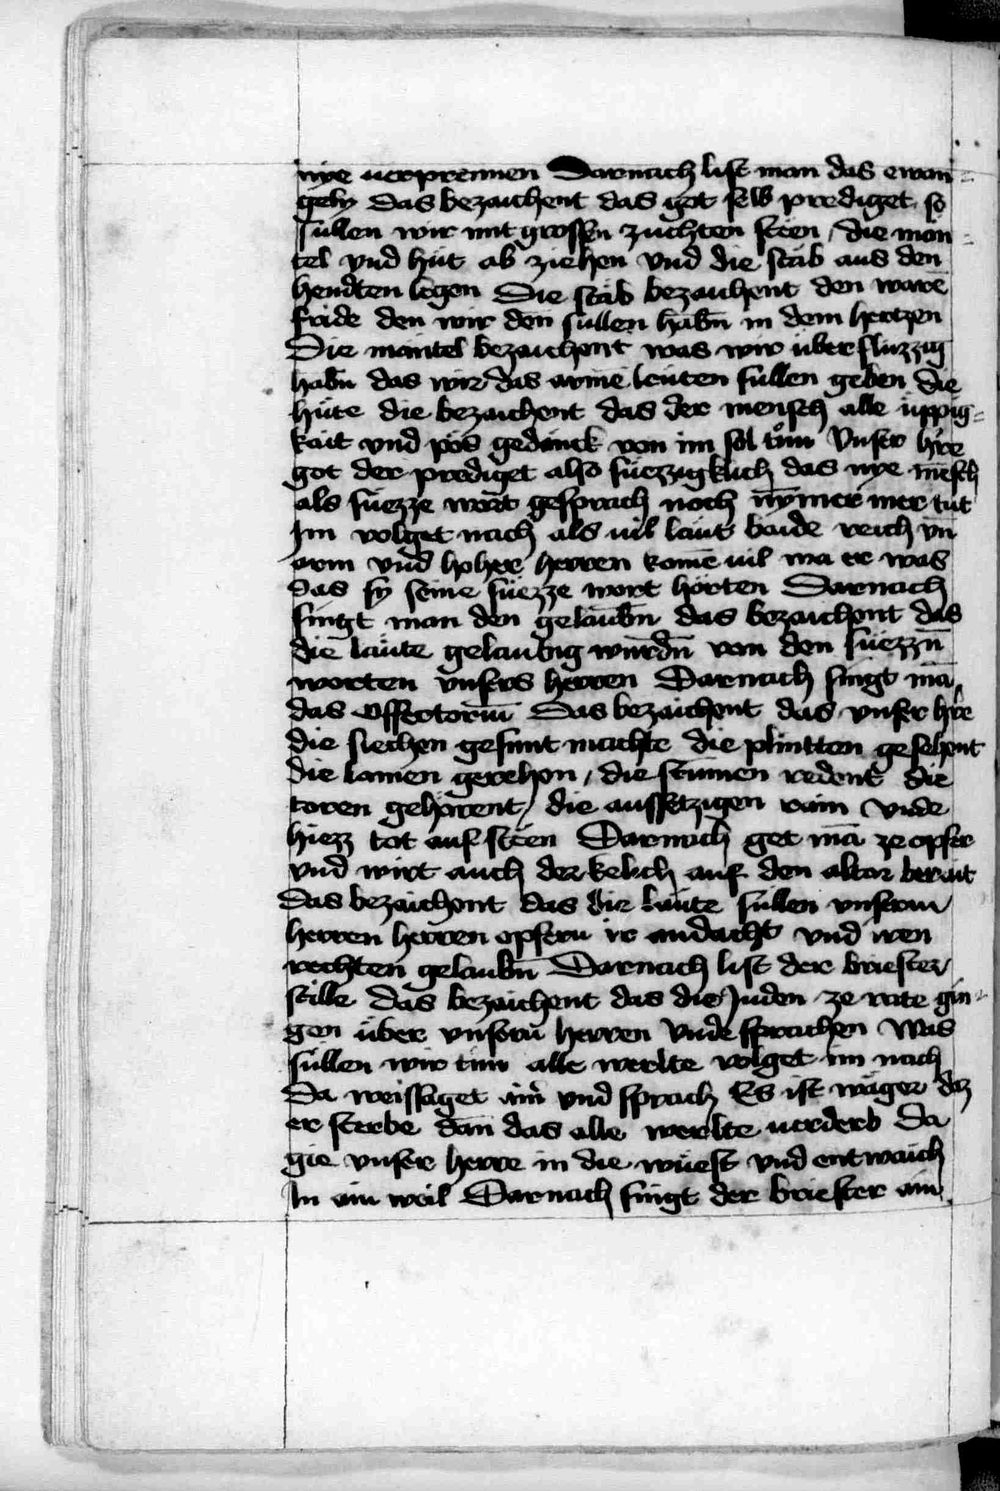 nye uerprennen Darnach list man das ewan=
gely Das bezaichent das got selb prediget so
süllen wir mit grossen zuchten sten / die män=
tel vnd hüt ab ziehen vnd die stäb aus den
hendten legen Die stäb bezaichent den warē
fride den wir den süllen habñ in dem hertzen
Die mäntel bezaichent was wir überflüzzig
habñ das wir das armē leüten süllen geben Die
hüte die bezaichent das der mensch alle üppig=
kait vnd pös gedänck von im sol tün Vnser hre
got der prediget also süezzigklich das nye mēsch
als süezze wort gesprach noch nymer mer tüt
Im volget nach als uil läut baide reich vñ
arm vnd hoher herren komē uil wa er was
das sy seine süezze wort hörten Darnach
singt man den gelaubñ das bezaichent das
die läute gelaubig wurdñ von den süezzñ
worten vnsers herren Darnach singt mā
das offertoriū Das bezaichent das vnser hre
die siechen gesunt machte die plintten gesehent
die lamen gerehen / die stummen redent die
toren gehörent / die aussetzigen rain vnde
hiezz tot auf sten Darnach get mā ze opfer
vnd wirt auch der kelich auf den altar berait
Das bezaichent das die läute süllen vnserm
herren herren opfern ir andacht vnd iren
rechten gelaubñ Darnach list der briester
stille Das bezaichent das die Juden ze rate gin=
gen über vnserū herren vnde sprachen Was
süllen wir tün alle werlte volget im nach
Da weissaget ainr vnd sprach Es ist wäger dz
er sterbe dan das alle werlte uerderb Da
gie vnser herre in die wüest vnd entwaich
In ain weil Darnach singt der briester ain